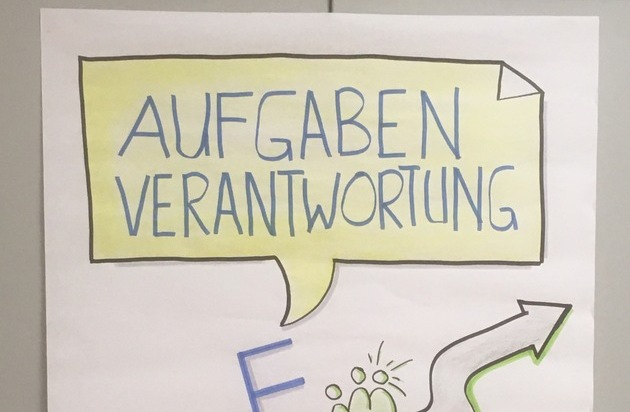 AUFGABEN
VERANTWORTUNG
E